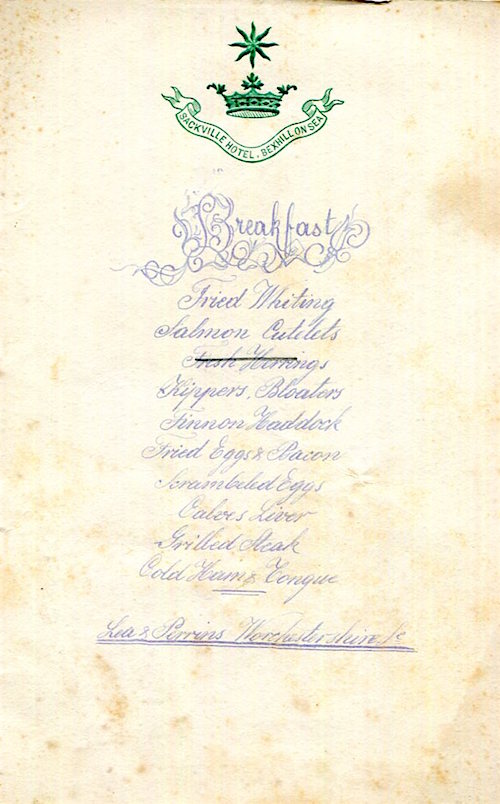 SACKVILLE HOTEL, BEXHILL ON SEA
Breakfast
Fried Whiting
Salmon Cutlets
Fresh Herrings
Kippers, Bloaters
Finnon Haddock
Fried Eggs & Bacon
Scrambled Eggs
Calves Liver
Grilled Steak
Cold Ham & Tongue
Lea & Perrins Worchestershire